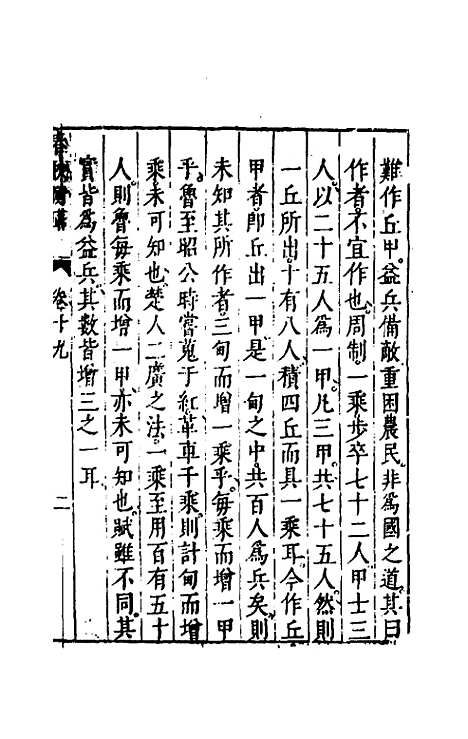 難作丘甲益兵備敵重困農民非為國之道其曰
作者不宜作也周制一乘步卒七十二人甲士三
人以二十五人為一甲凡三甲共七十五人然則
一丘所出十有八人積四丘而具一乘耳今作丘
甲者卽丘出一甲是一甸之中共百人為兵矣則
未知其所作者三甸而增一乘乎每乘而增一甲
乎魯至昭公時嘗蒐于紅革車千乘則計甸而增
乘未可知也楚人二廣之法一乘至用百有五十
人則魯每乘而增一甲亦未可知也賦雖不同其
實皆為益兵其數皆增三之一耳
卷十九
二